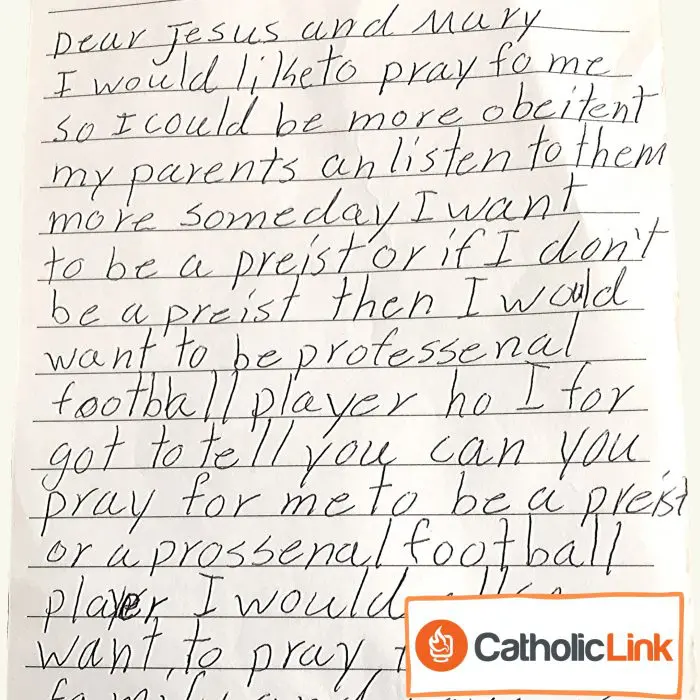 Dear Jesus and Mary
I would like to pray fo me
so I could be more obeitent
my parents an listen to them
more someday I want
to be a preist or if I don't
be a preist then I would
want to be professenal
football player ho I for
got to tell you can you
pray for me to be a preist
or a prossenal football
player I would
want to pray
CatholicLink